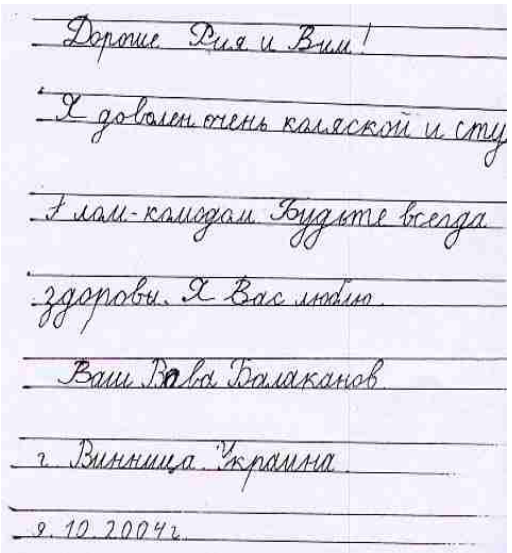 Дорогие Рия и Вим!
Я доволен очень коляской и сту
лом-комодом Будьте всегда
здоровы. Я Вас люблю.
Ваш Вова Балаканов
г. Винница Украина
9.10.2004г.